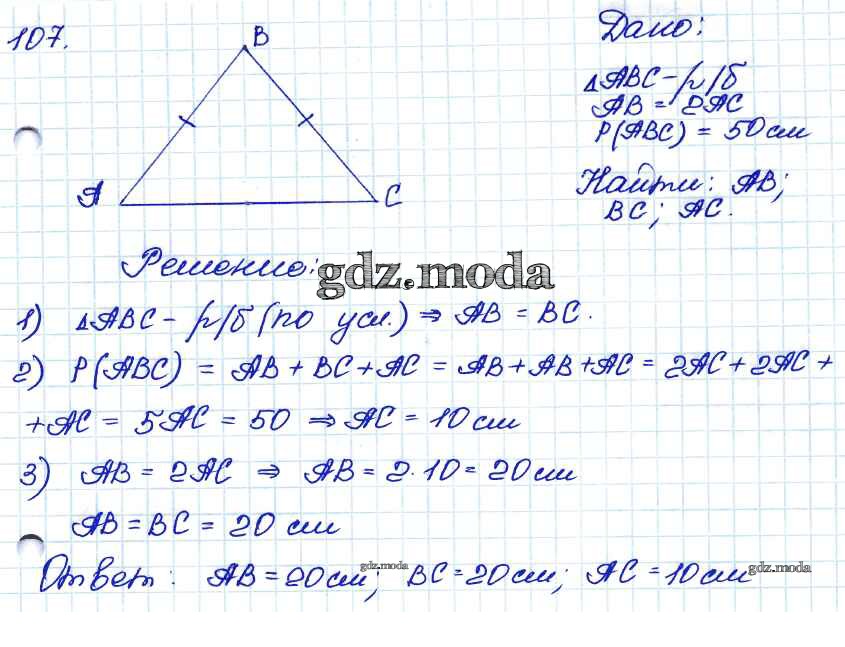 107.
B
A
C
Дано:
△ABC - р/б
AB = 2AC
P(ABC) = 50см
Найти: AB;
BC; AC.
Решение:
gdz.moda
1) △ABC - р/б (по усл.) ⇒ AB = BC.
2) P(ABC) = AB + BC + AC = AB + AB + AC = 2AC + 2AC +
+ AC = 5AC = 50 ⇒ AC = 10см
3) AB = 2AC ⇒ AB = 2·10 = 20см
AB = BC = 20 см
gdz.moda
Ответ: AB = 20см; BC = 20см; AC = 10см
gdz.moda